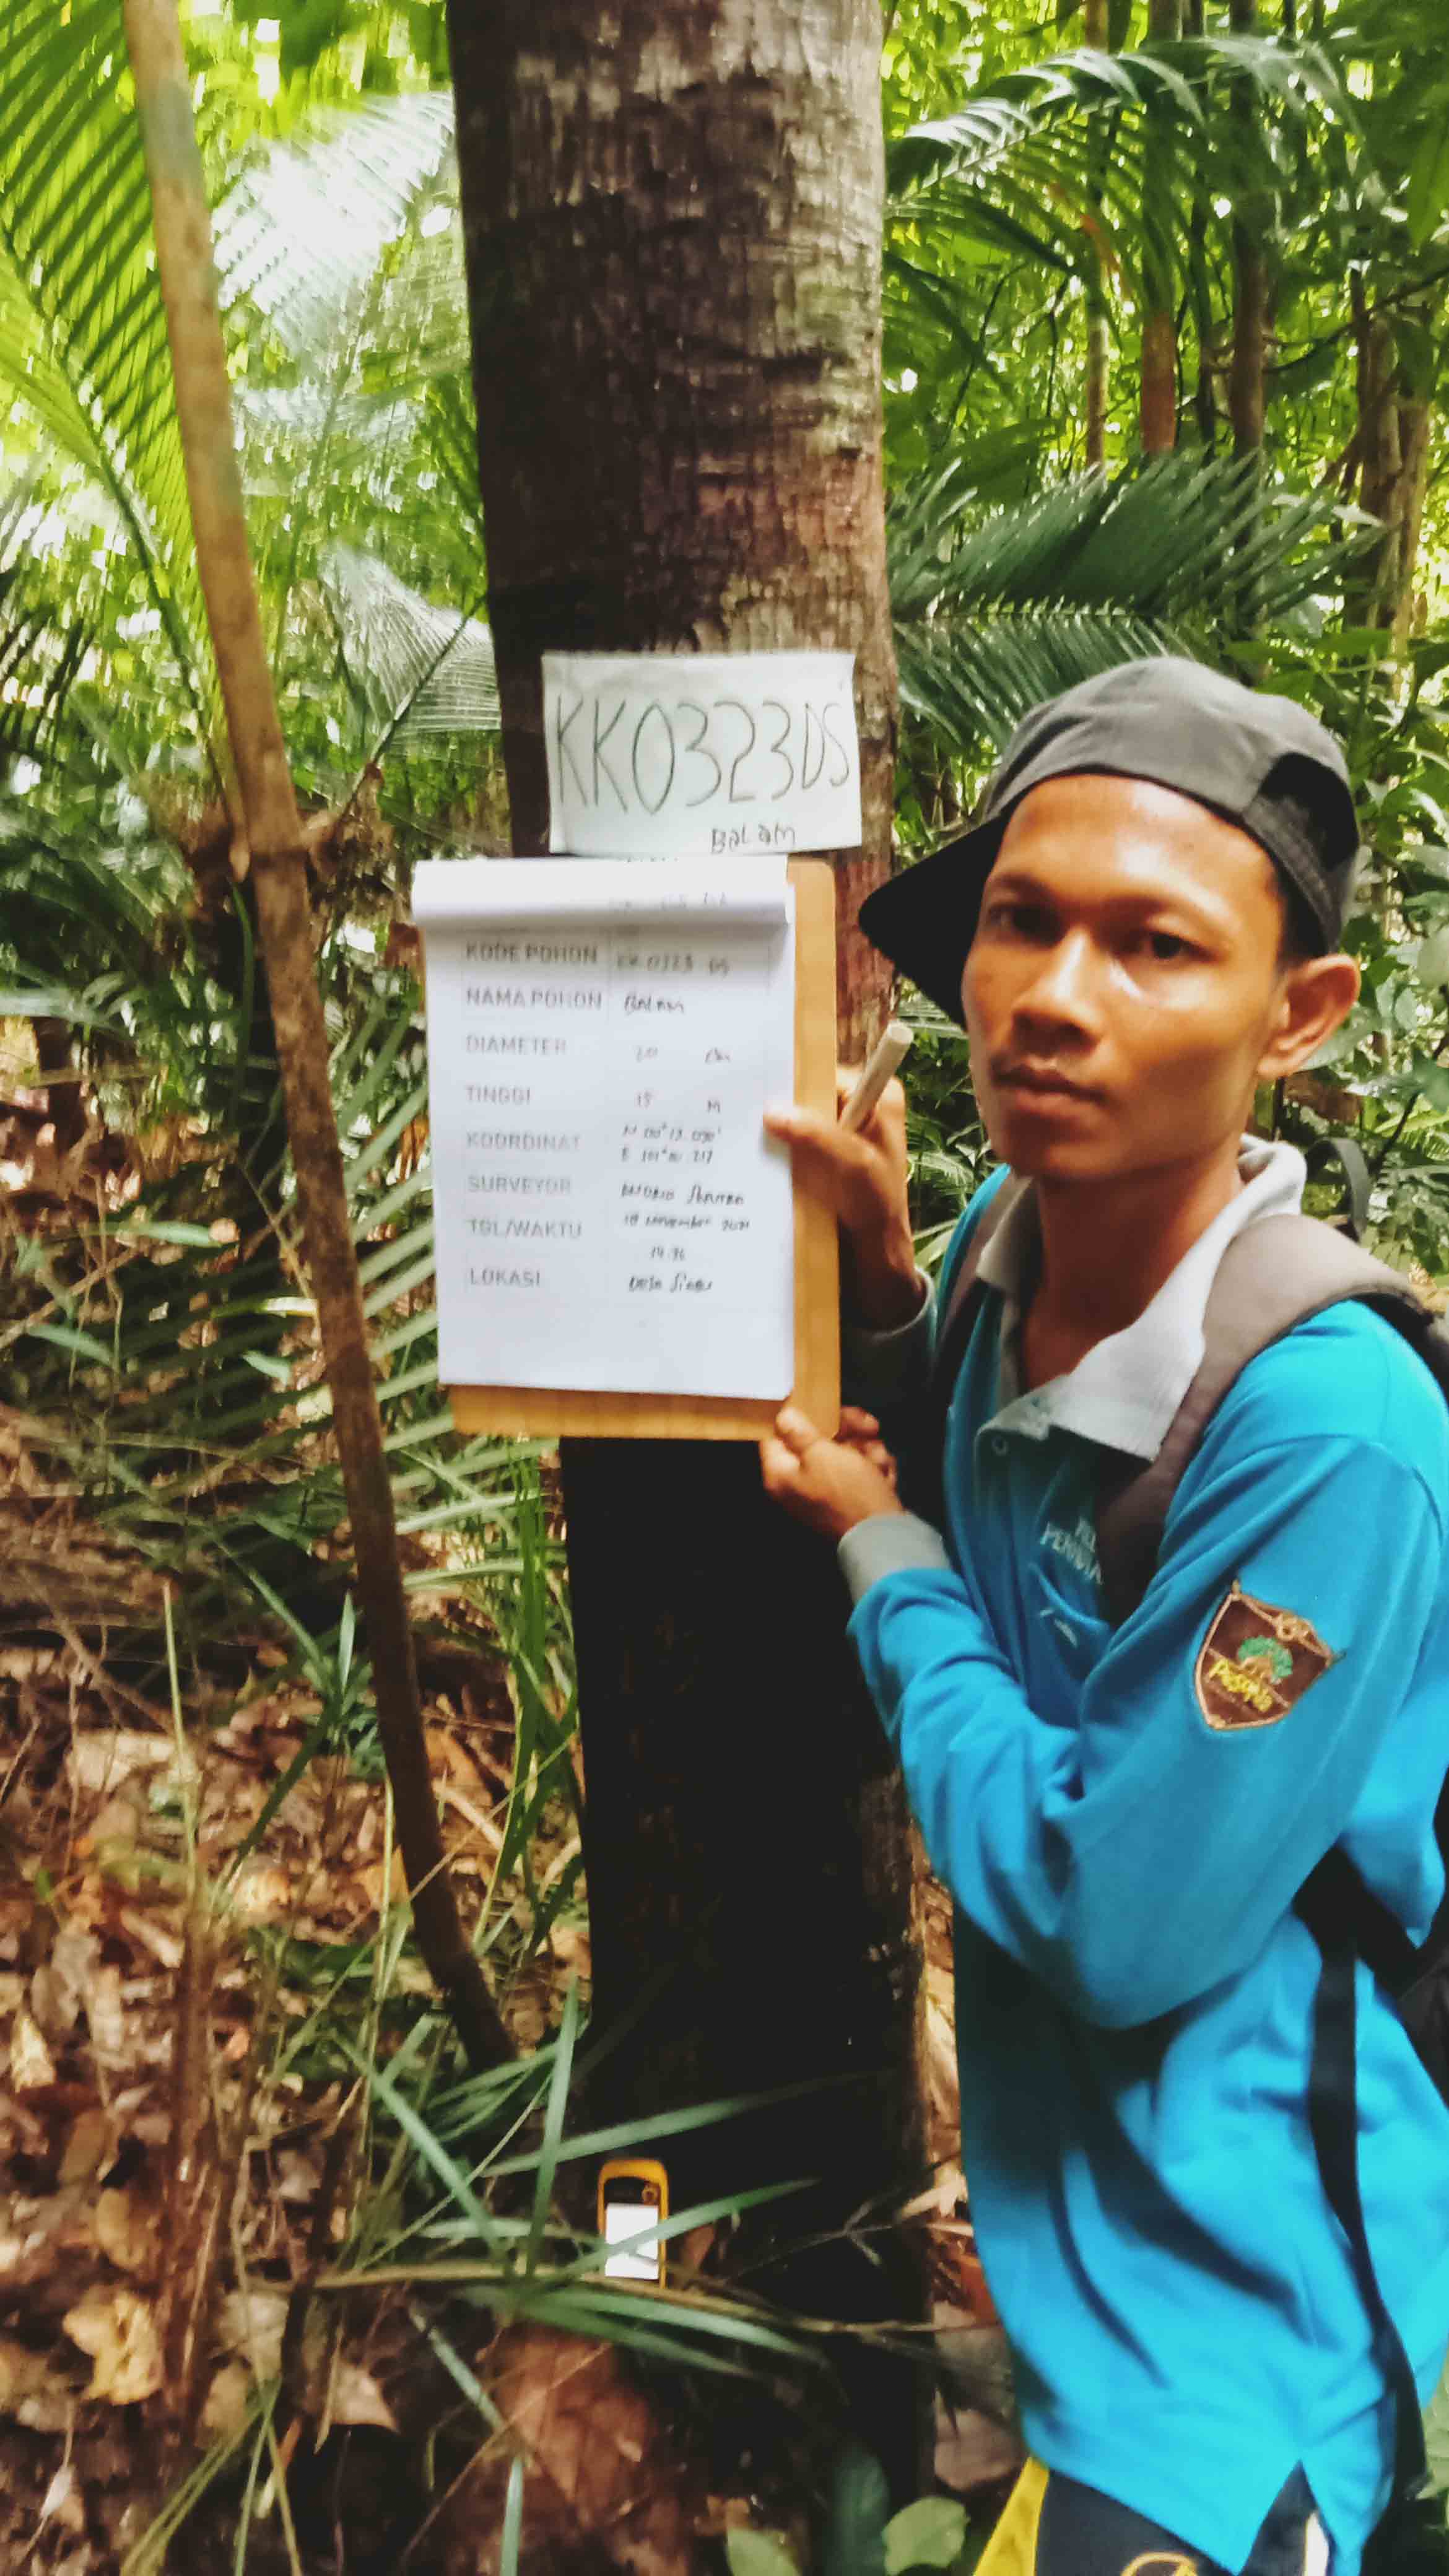 KK0323DS
Balam
KODE POHON KK 0323 DS
NAMA POHON Balam
DIAMETER 20 Cm
TINGGI 15 M
KOORDINAT N 00°
E 101° 217
SURVEYOR
TGL/WAKTU 18 November
LOKASI Desa